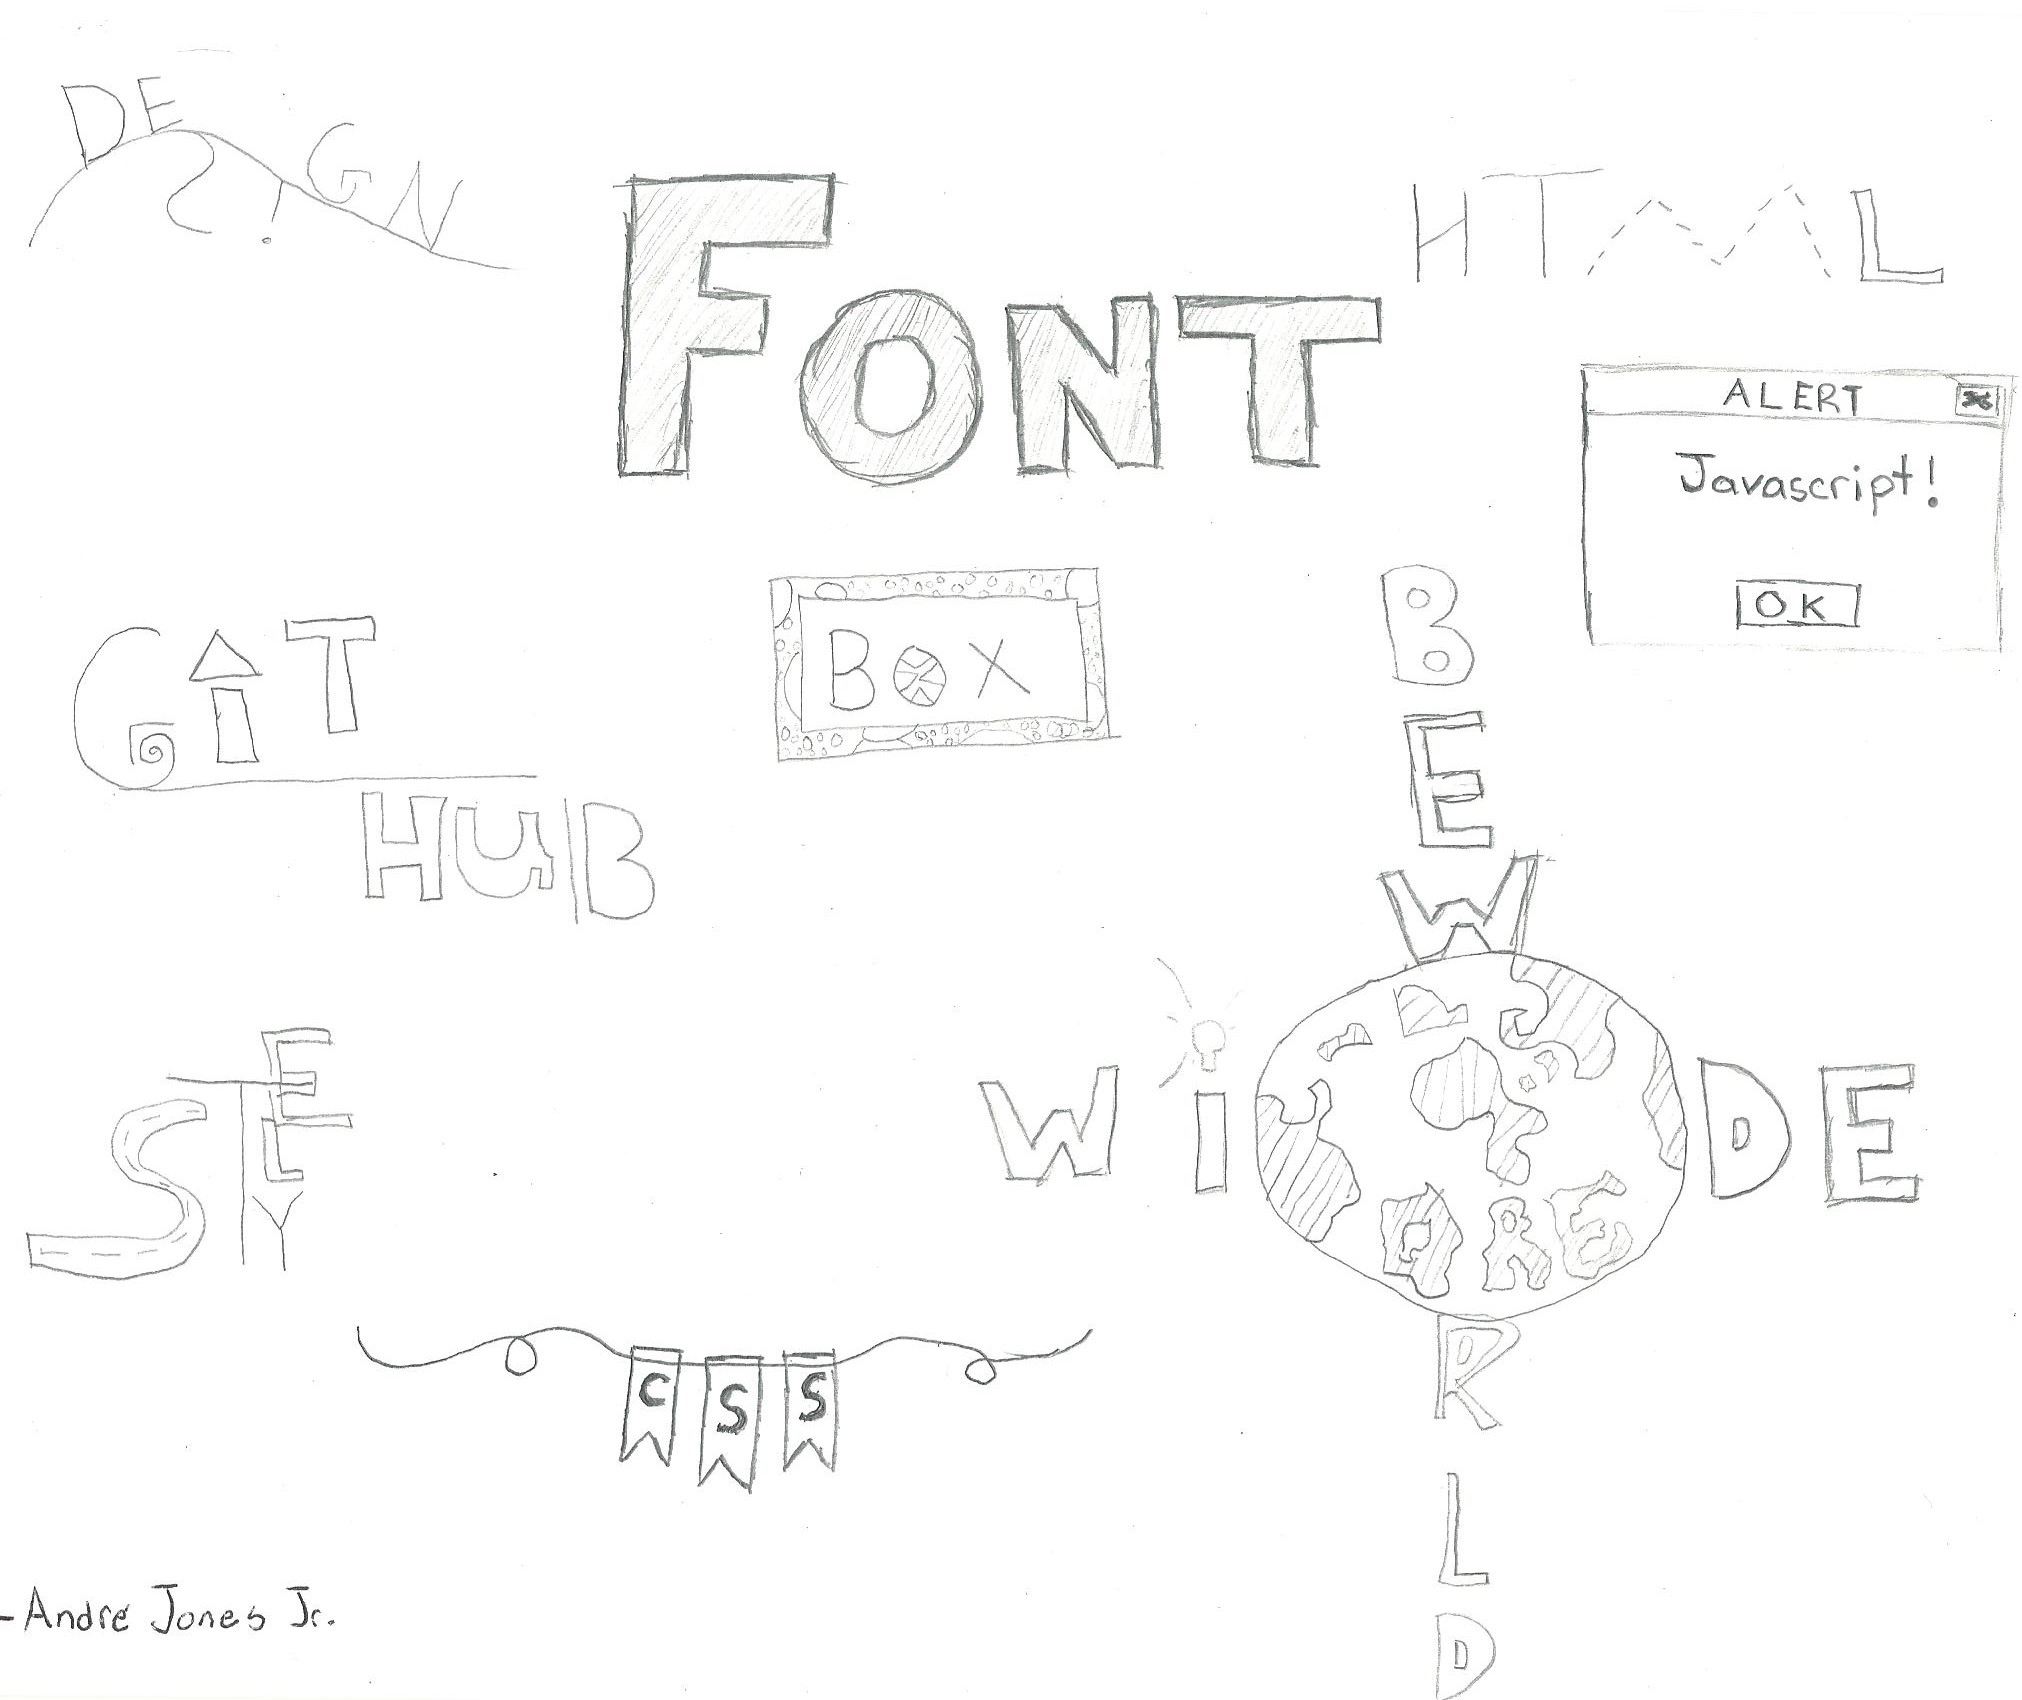 DESIGN
FONT
HTML
ALERT
Javascript!
OK
GiT
HUB
BOX
B
E
W
WiDE
ARE
R
L
D
STYLE
CSS
-Andre Jones Jr.